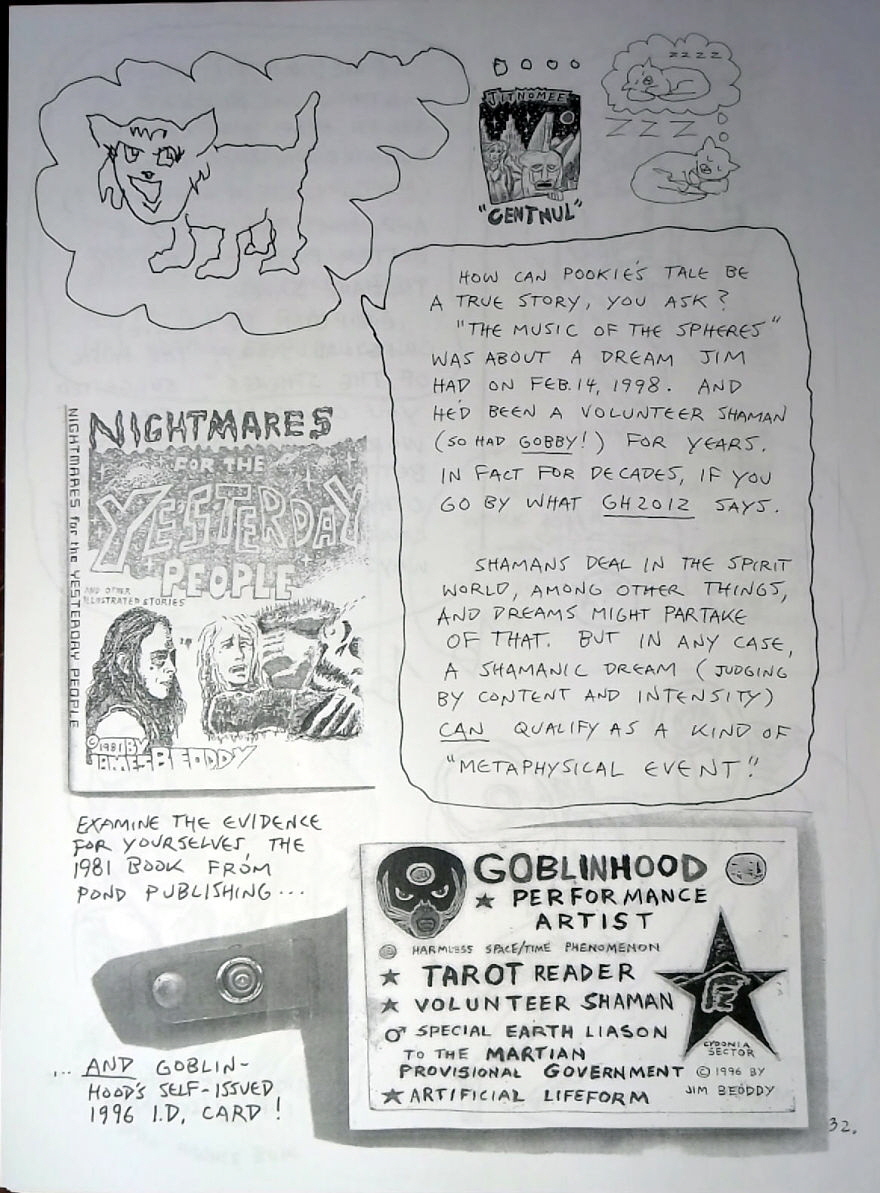 ZZZZ
ZZZ
JITNOMEE
"CENTNUL"
HOW CAN POOKIE'S TALE BE
A TRUE STORY, YOU ASK?
"THE MUSIC OF THE SPHERES"
WAS ABOUT A DREAM JIM
HAD ON FEB. 14, 1998. AND
HE'D BEEN A VOLUNTEER SHAMAN
(SO HAD GOBBY!) FOR YEARS.
IN FACT FOR DECADES, IF YOU
GO BY WHAT GH2012 SAYS.
SHAMANS DEAL IN THE SPIRIT
WORLD, AMONG OTHER THINGS,
AND DREAMS MIGHT PARTAKE
OF THAT. BUT IN ANY CASE,
A SHAMANIC DREAM (JUDGING
BY CONTENT AND INTENSITY)
CAN QUALIFY AS A KIND OF
"METAPHYSICAL EVENT"!
NIGHTMARES for the YESTERDAY PEOPLE
NIGHTMARES
FOR THE
YESTERDAY
PEOPLE
AND OTHER
ILLUSTRATED STORIES
©1981 BY
JAMES BEODDY
EXAMINE THE EVIDENCE
FOR YOURSELVES, THE
1981 BOOK FROM
POND PUBLISHING...
...AND GOBLIN-
HOOD'S SELF-ISSUED
1996 I.D. CARD!
GOBLINHOOD
★ PERFORMANCE
ARTIST
HARMLESS SPACE/TIME PHENOMENON
★ TAROT READER
★ VOLUNTEER SHAMAN
♂ SPECIAL EARTH LIASON
TO THE MARTIAN
PROVISIONAL GOVERNMENT
★ ARTIFICIAL LIFEFORM
CYDONIA
SECTOR
© 1996 BY
JIM BEODDY
32.